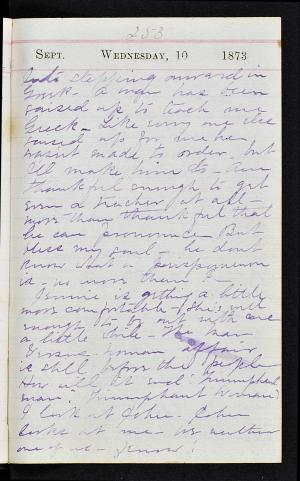 253
SEPT. WEDNESDAY, 10 1873
stepping onward in
Greek - A man has been
raised up to teach me
Greek - Like every one else
raised up for me he
wasn't made to order - but
I'll make him do - Am
thankful enough to get
even a teacher at all -
more than thankful that
he can pronounce - But
bless my soul - he don't
know what a
is - no more
Jennie is gettin' a little
more comfortable - She's well
enough to be out with care
a little while - The man
versus woman affair
is still before the people
How will it end? Triumphant
man? Triumphant Woman?
I look at John - John
looks at me - us neither
one of us - know!